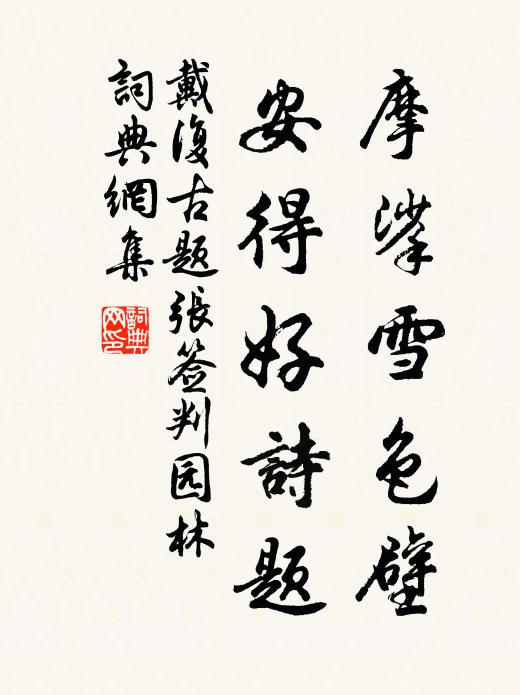 摩挲雪色壁
安得好詩題
戴復古題張簽判园林
詞典網集
詞典
网印